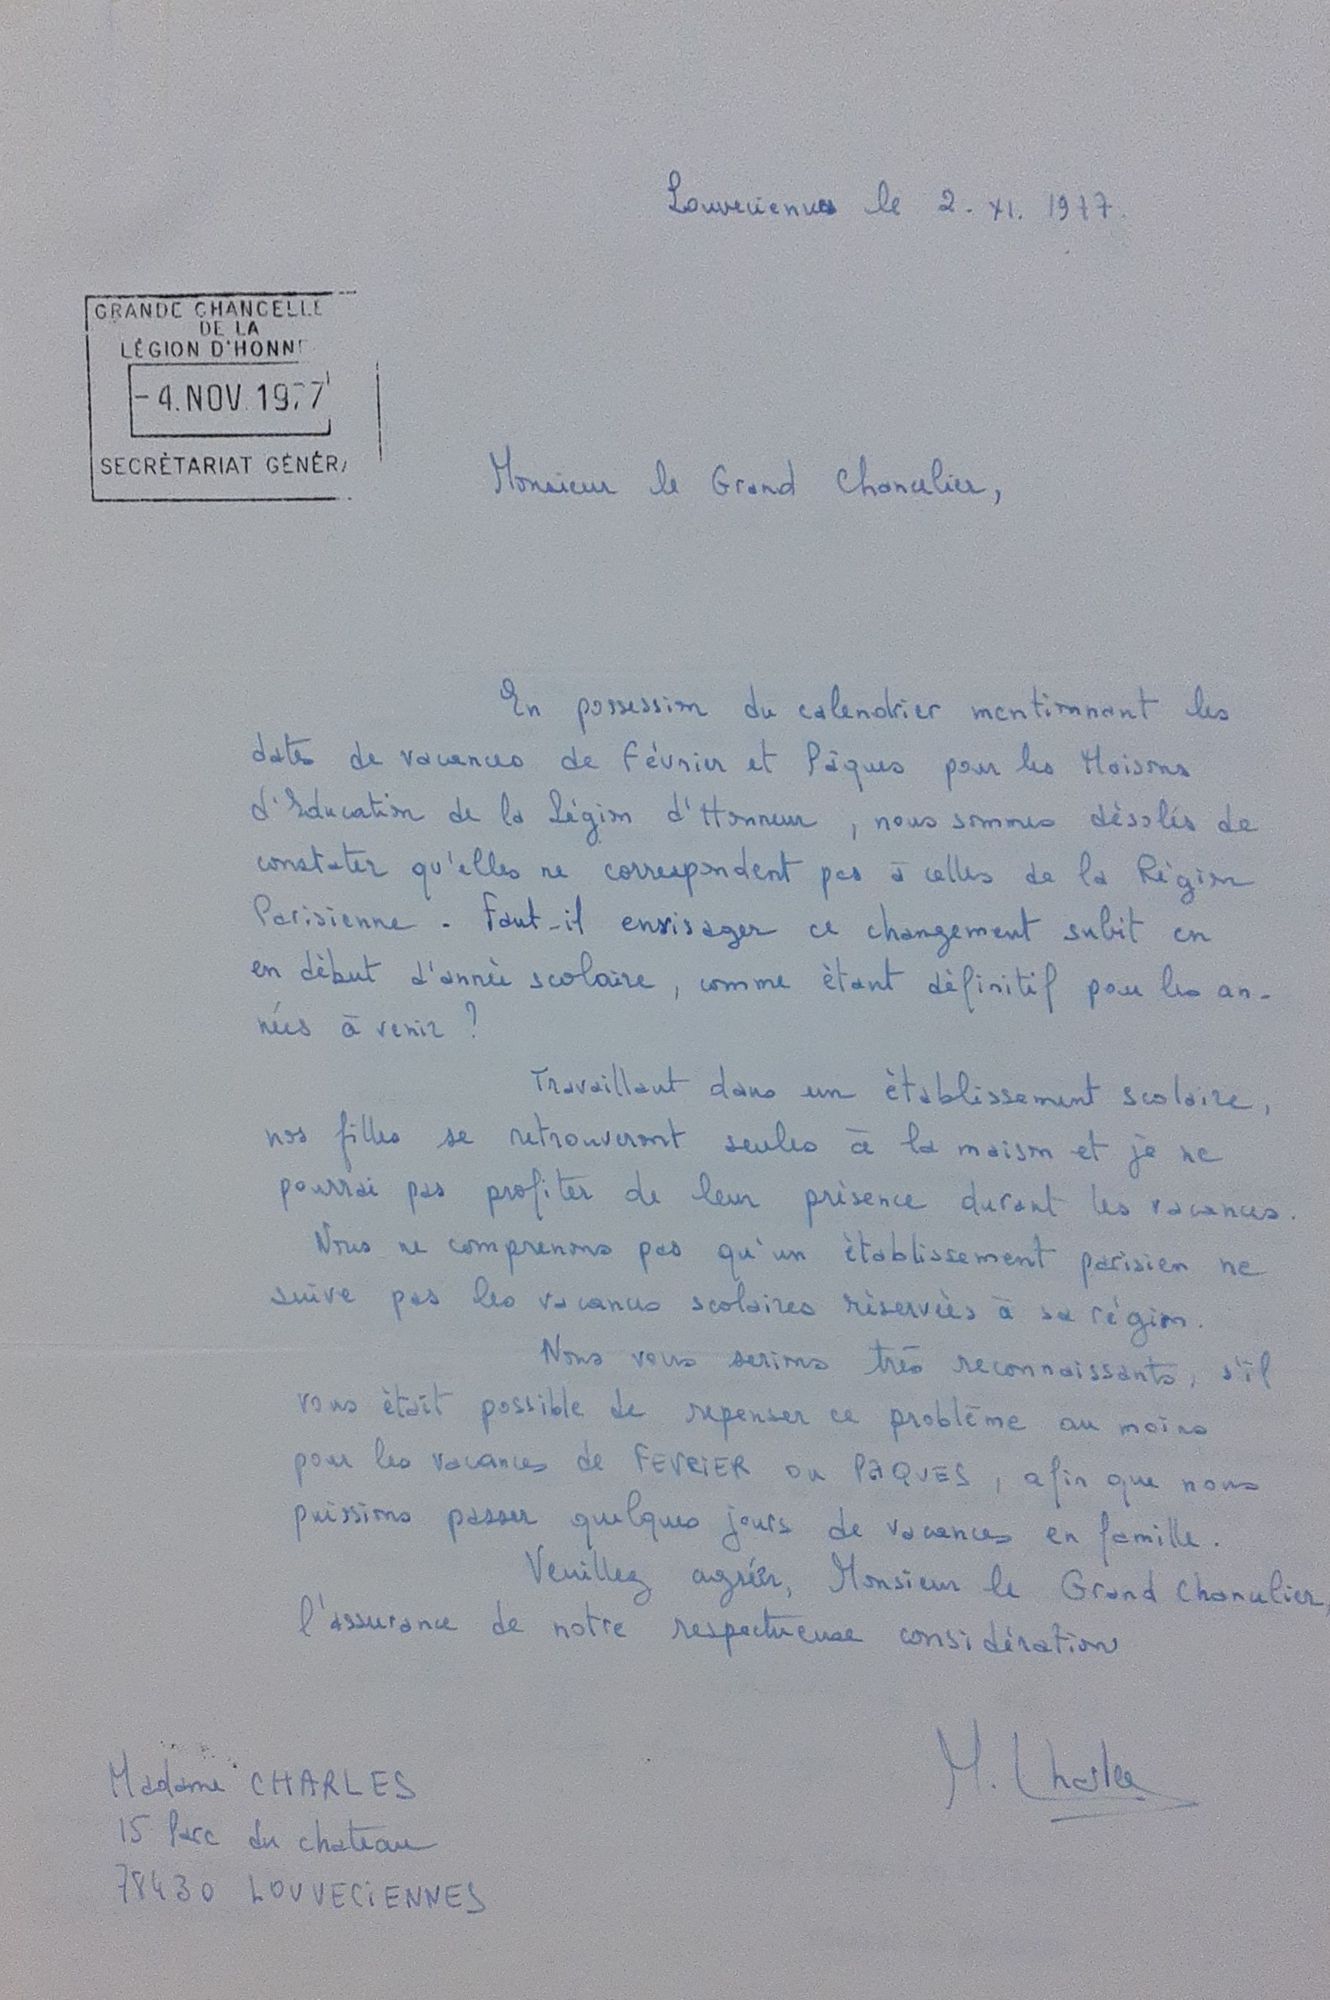 Louveciennes le 2. XI. 1977.
GRANDE CHANCELLE
DE LA
LÉGION D'HONN
-4. NOV. 1977
SECRÉTARIAT GÉNÉR
Monsieur le Grand Chancelier,
En possession du calendrier mentionnant les
dates de vacances de Février et Pâques pour les Maisons
d'Education de la Légion d'Honneur, nous sommes désolés de
constater qu'elles ne correspondent pas à celles de la Région
Parisienne. Faut-il envisager ce changement subit en
en début d'année scolaire, comme étant définitif pour les an-
nées à venir ?
Travaillant dans un établissement scolaire,
nos filles se retrouveront seules à la maison et je ne
pourrai pas profiter de leur présence durant les vacances.
Nous ne comprenons pas qu'un établissement parisien ne
suive pas les vacances scolaires réservées à sa région.
Nous vous serions très reconnaissants, s'il
vous était possible de repenser ce problème au moins
pour les vacances de FEVRIER ou PÂQUES, afin que nous
puissions passer quelques jours de vacances en famille.
Veuillez agréer, Monsieur le Grand Chancelier,
l'assurance de notre respectueuse considération
M. Charles
Madame CHARLES
15 Parc du chateau
78430 LOUVECIENNES